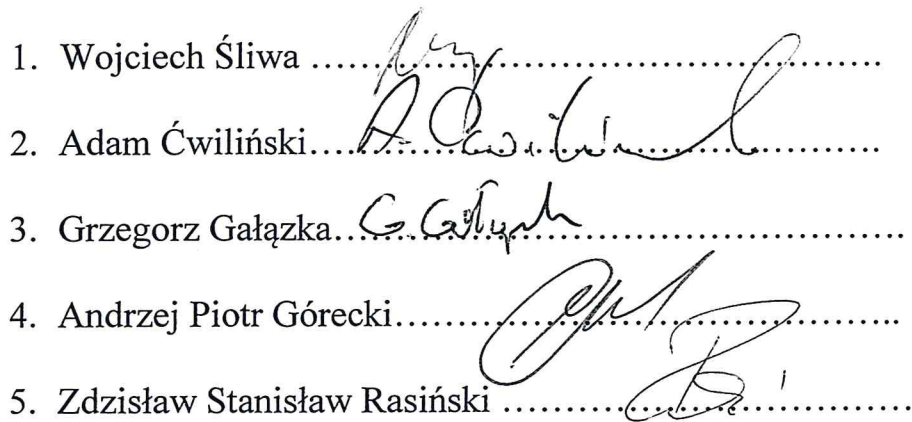 1. Wojciech Śliwa ....................................................
2. Adam Ćwiliński.................................................... A. Ćwiliński
3. Grzegorz Gałązka.................................................... G. Gałązka
4. Andrzej Piotr Górecki....................................................
5. Zdzisław Stanisław Rasiński ....................................................